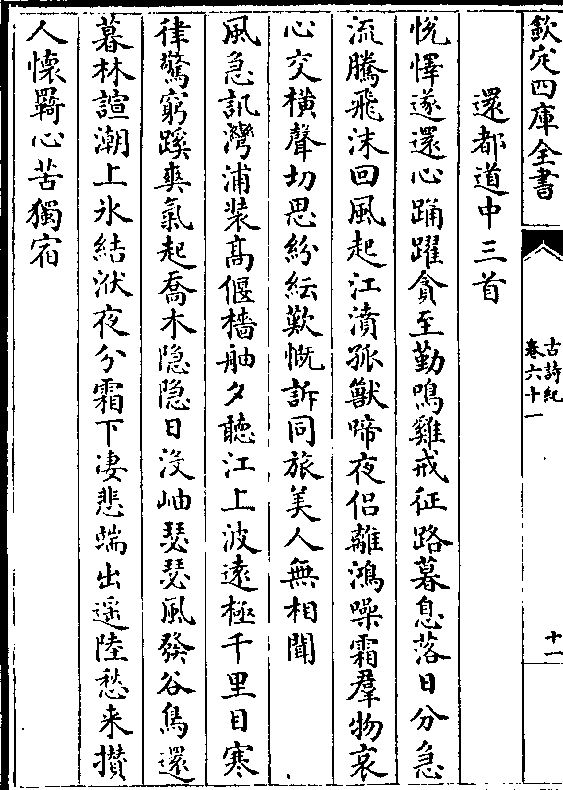 欽定四庫全書
古詩紀
卷六十一
十一
還都道中三首
悦懌遂還心踊躍貪至勤鳴雞戒征路暮息落日分急
流騰飛沫回風起江濆孤獸啼夜侣離鴻噪霜羣物哀
心交横聲切思紛紜歎慨訴同旅美人無相聞
風急訊灣浦装髙偃檣舳夕聽江上波遠極千里目寒
律驚窮蹊爽氣起喬木隐隐日没岫瑟瑟風發谷鳥還
暮林諠潮上氷結洑夜分霜下凄悲端出遥陸愁来攅
人懷羇心苦獨宿